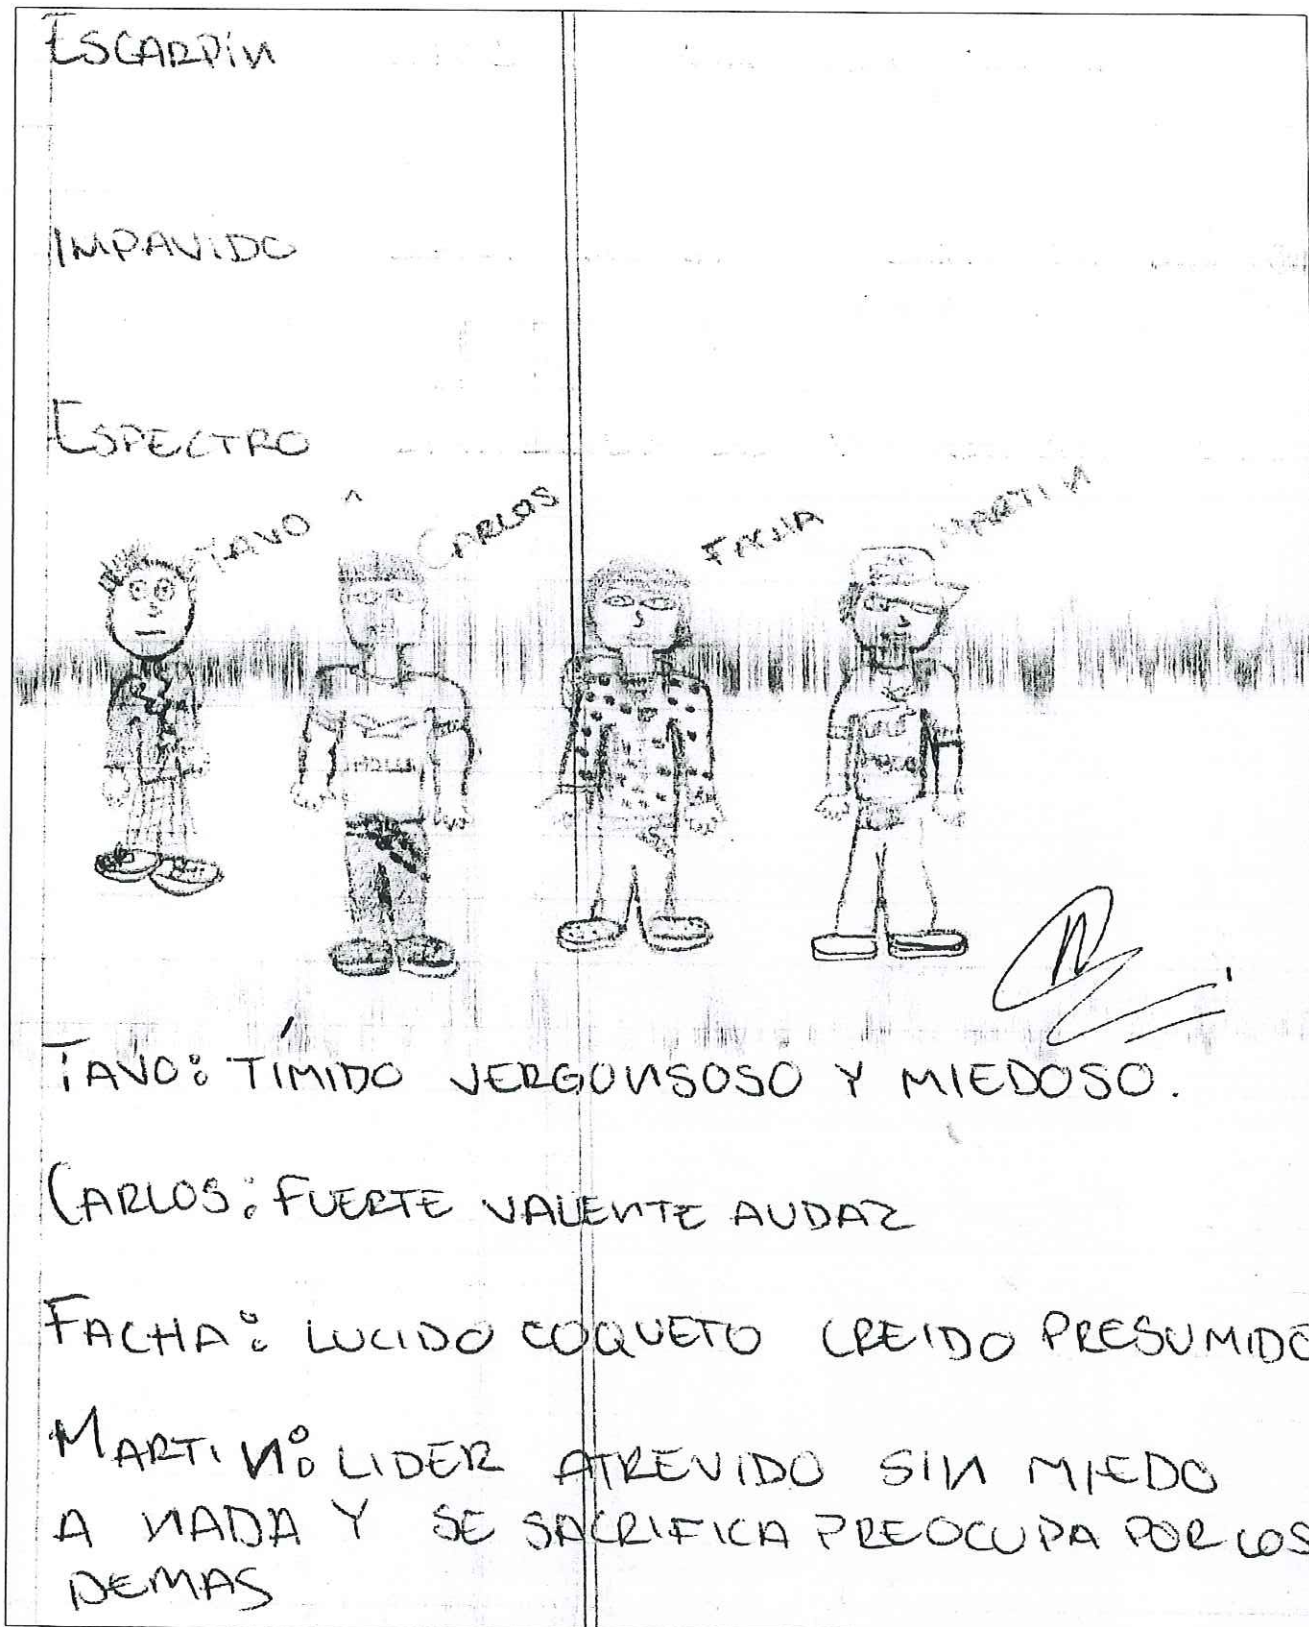 ESCARPIN
IMPAVIDO
ESPECTRO
TAVO
CARLOS
FACHA
MARTIN
TAVO: TÍMIDO VERGONSOSO Y MIEDOSO.
CARLOS: FUERTE VALENTE AUDAZ
FACHA: LUCIDO COQUETO CREIDO PRESUMIDO
MARTIN: LIDER ATREVIDO SIN MIEDO
A NADA Y SE SACRIFICA PREOCUPA POR LOS
DEMAS